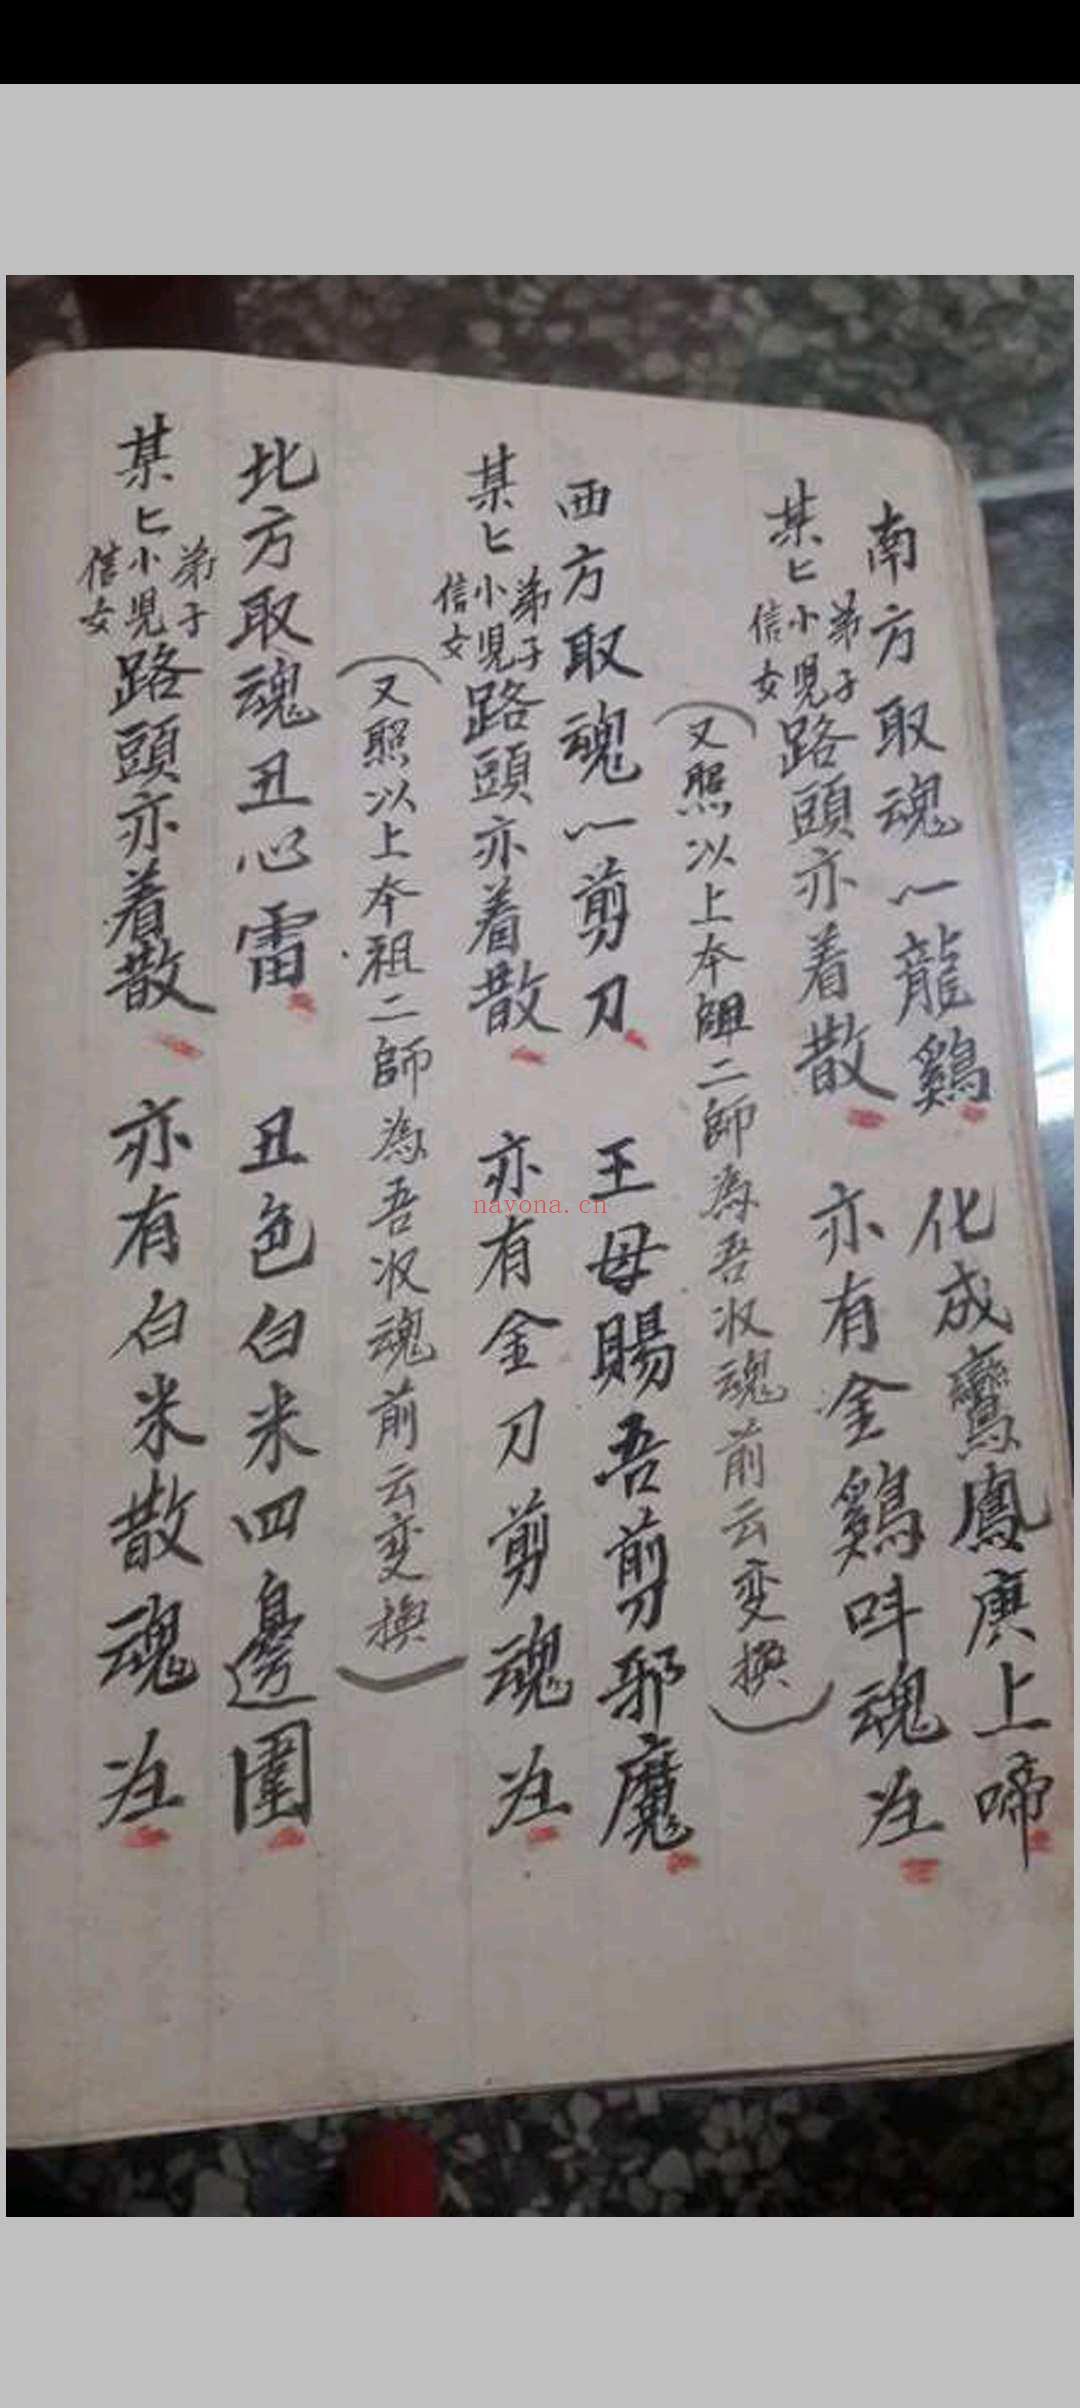 南方取魂一龍鷄　化成鸞鳳庚上啼
某匕弟子小児信女路頭亦着散　亦有金鷄呌魂㳕
(又照以上本祖二師為吾収魂前云変換)
西方取魂一剪刀　王母賜吾剪邪魔
某匕弟子小児信女路頭亦着散　亦有金刀剪魂
(又照以上本祖二師為吾収魂前云変換)
北方取魂丑心雷　丑色白米四邊圍
某匕弟子小児信女路頭亦着散　亦有白米散魂
nayona.cn